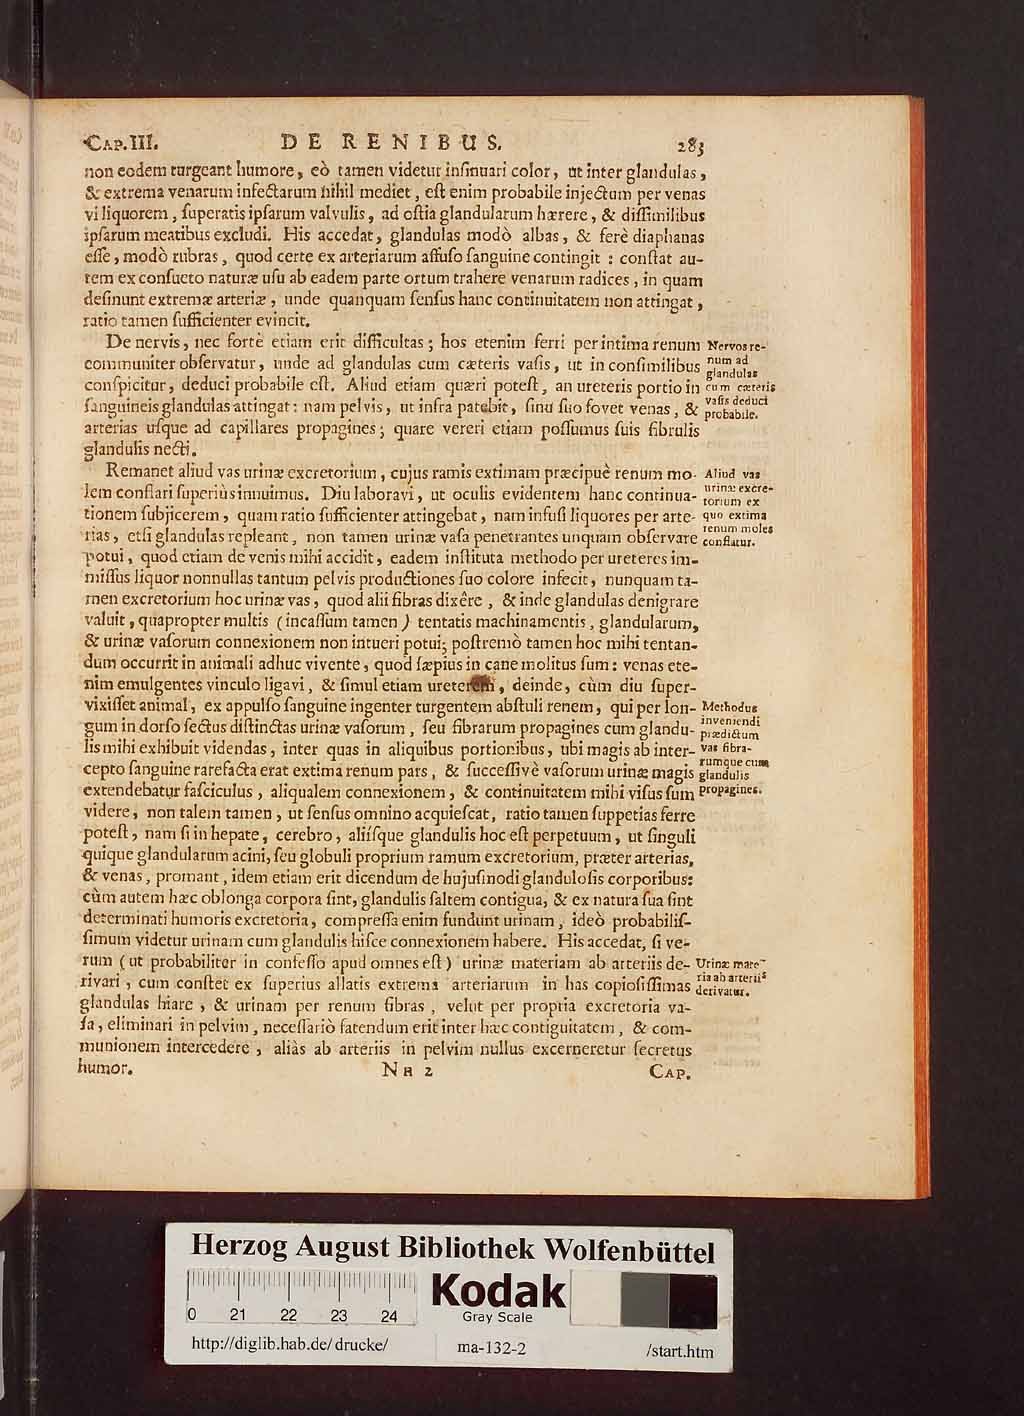 CAP. III. DE RENIBUS. 283
non eodem turgeant humore, eò tamen videtur inſinuari color, ut inter glandulas,
& extrema venarum infectarum nihil mediet, eſt enim probabile injectum per venas
vi liquorem, ſuperatis ipſarum valvulis, ad oſtia glandularum hærere, & diſſimilibus
ipſarum meatibus excludi. His accedat, glandulas modò albas, & ferè diaphanas
eſſe, modò rubras, quod certe ex arteriarum affuſo ſanguine contingit: conſtat au-
tem ex conſueto naturæ uſu ab eadem parte ortum trahere venarum radices, in quam
deſinunt extremæ arteriæ, unde quanquam ſenſus hanc continuitatem non attingat,
ratio tamen ſufficienter evincit.
De nervis, nec fortè etiam erit difficultas; hos etenim ferri per intima renum
communiter obſervatur, unde ad glandulas cum cæteris vaſis, ut in conſimilibus
conſpicitur, deduci probabile eſt. Aliud etiam quæri poteſt, an ureteris portio in
ſanguineis glandulas attingat: nam pelvis, ut infra patebit, ſinu ſuo fovet venas, &
arterias uſque ad capillares propagines; quare vereri etiam poſſumus ſuis fibrulis
glandulis necti.
Nervos re-
num ad
glandulas
cum cæteris
vaſis deduci
probabile.
Remanet aliud vas urinæ excretorium, cujus ramis extimam præcipuè renum mo-
lem conflari ſuperiùs innuimus. Diu laboravi, ut oculis evidentem hanc continua-
tionem ſubjicerem, quam ratio ſufficienter attingebat, nam infuſi liquores per arte-
rias, etſi glandulas repleant, non tamen urinæ vaſa penetrantes unquam obſervare
potui, quod etiam de venis mihi accidit, eadem inſtituta methodo per ureteres im-
miſſus liquor nonnullas tantum pelvis productiones ſuo colore infecit, nunquam ta-
men excretorium hoc urinæ vas, quod alii fibras dixêre, & inde glandulas denigrare
valuit, quapropter multis (incaſſum tamen) tentatis machinamentis, glandularum,
& urinæ vaſorum connexionem non intueri potui; poſtremò tamen hoc mihi tentan-
dum occurrit in animali adhuc vivente, quod ſæpius in cane molitus ſum: venas ete-
nim emulgentes vinculo ligavi, & ſimul etiam ureterem, deinde, cùm diu ſuper-
vixiſſet animal, ex appulſo ſanguine ingenter turgentem abſtuli renem, qui per lon-
gum in dorſo ſectus diſtinctas urinæ vaſorum, ſeu fibrarum propagines cum glandu-
lis mihi exhibuit videndas, inter quas in aliquibus portionibus, ubi magis ab inter-
cepto ſanguine rarefacta erat extima renum pars, & ſucceſſivè vaſorum urinæ magis
extendebatur faſciculus, aliqualem connexionem, & continuitatem mihi viſus ſum
videre, non talem tamen, ut ſenſus omnino acquieſcat, ratio tamen ſuppetias ferre
poteſt, nam ſi in hepate, cerebro, aliiſque glandulis hoc eſt perpetuum, ut ſinguli
quique glandularum acini, ſeu globuli proprium ramum excretorium, præter arterias,
& venas, promant, idem etiam erit dicendum de hujuſmodi glanduloſis corporibus:
cùm autem hæc oblonga corpora ſint, glandulis ſaltem contigua, & ex natura ſua ſint
determinati humoris excretoria, compreſſa enim fundunt urinam, ideò probabiliſ-
ſimum videtur urinam cum glandulis hiſce connexionem habere. His accedat, ſi ve-
rum (ut probabiliter in confeſſo apud omnes eſt) urinæ materiam ab arteriis de-
rivari, cum conſtet ex ſuperius allatis extrema arteriarum in has copioſiſſimas
glandulas hiare, & urinam per renum fibras, velut per propria excretoria va-
ſa, eliminari in pelvim, neceſſariò fatendum erit inter hæc contiguitatem, & com-
munionem intercedere, aliàs ab arteriis in pelvim nullus excerneretur ſecretus
humor.
Aliud vas
urinæ excre-
torium ex
quo extima
renum moles
conflatur.
Methodus
inveniendi
prædictum
vas fibra-
rumque cum
glandulis
propagines.
Urinæ mate-
ria ab arteriis
derivatur.
Nn 2 CAP.
Herzog August Bibliothek Wolfenbüttel
0 21 22 23 24
Kodak
Gray Scale
http://diglib.hab.de/drucke/ ma-132-2 /start.htm